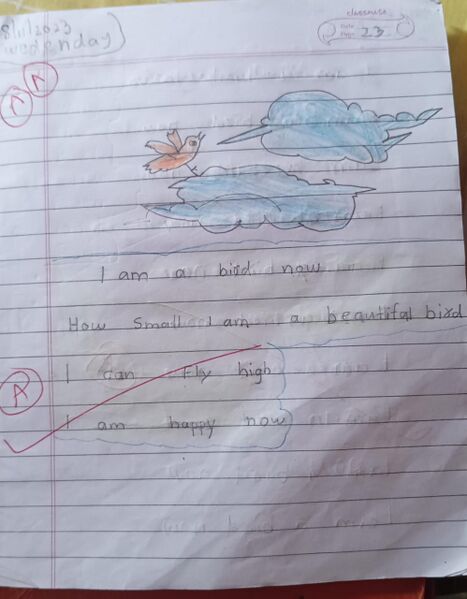 classmate
Date
Page 23
8/11/2023
Wedenday
A A
I am a bird now
How Small I am a beautifal bird
I can fly high
A
I am happy now